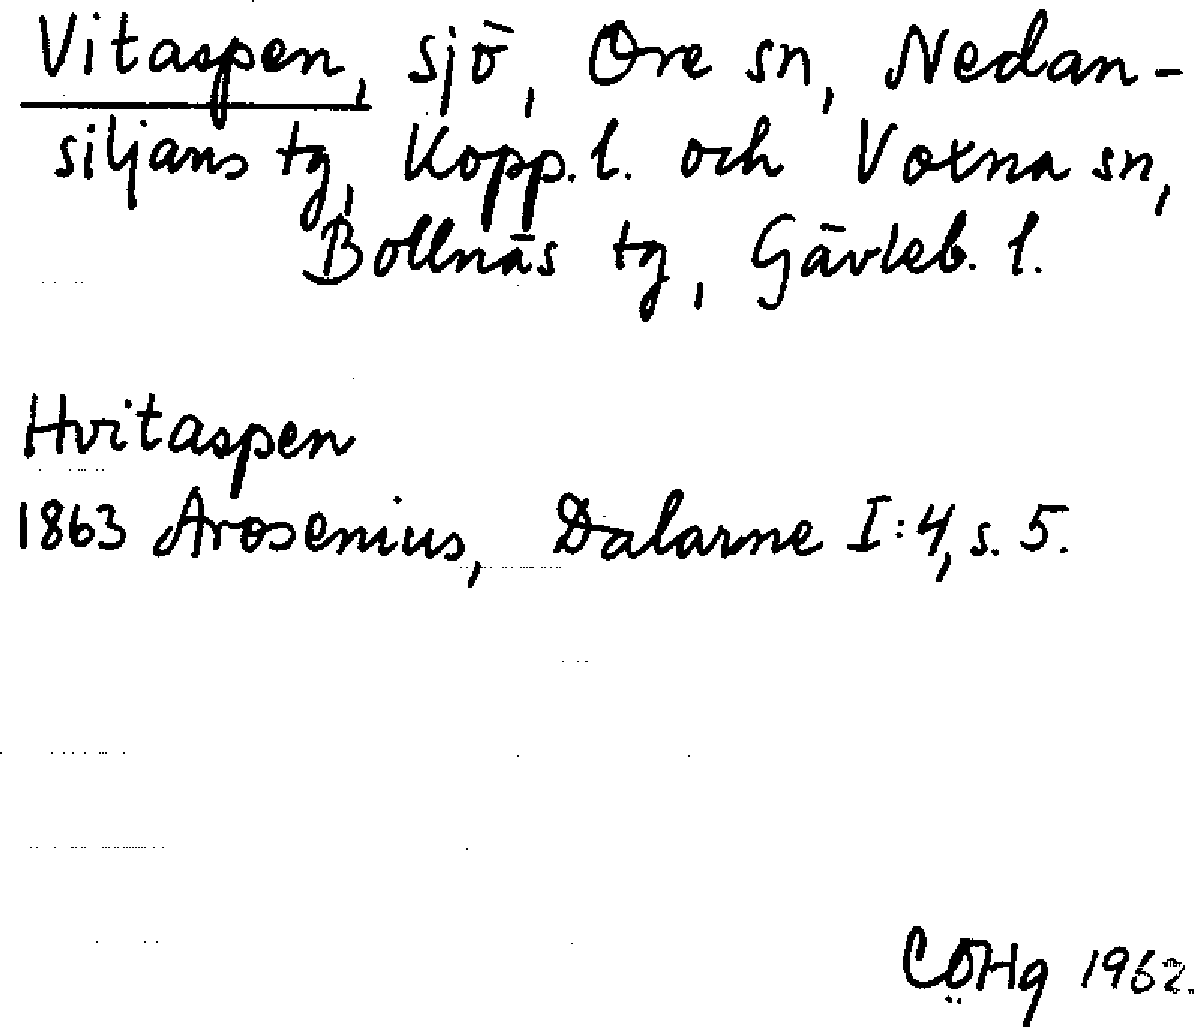 Vitaspen, sjö, Ore sn, Nedan-
siljans tg, Kopp. l. och Voxna sn,
Bollnäs tg, Gävleb. l.
Hvitaspen
1863 Arosenius, Dalarne I:4, s. 5.
CÖHg 1962.